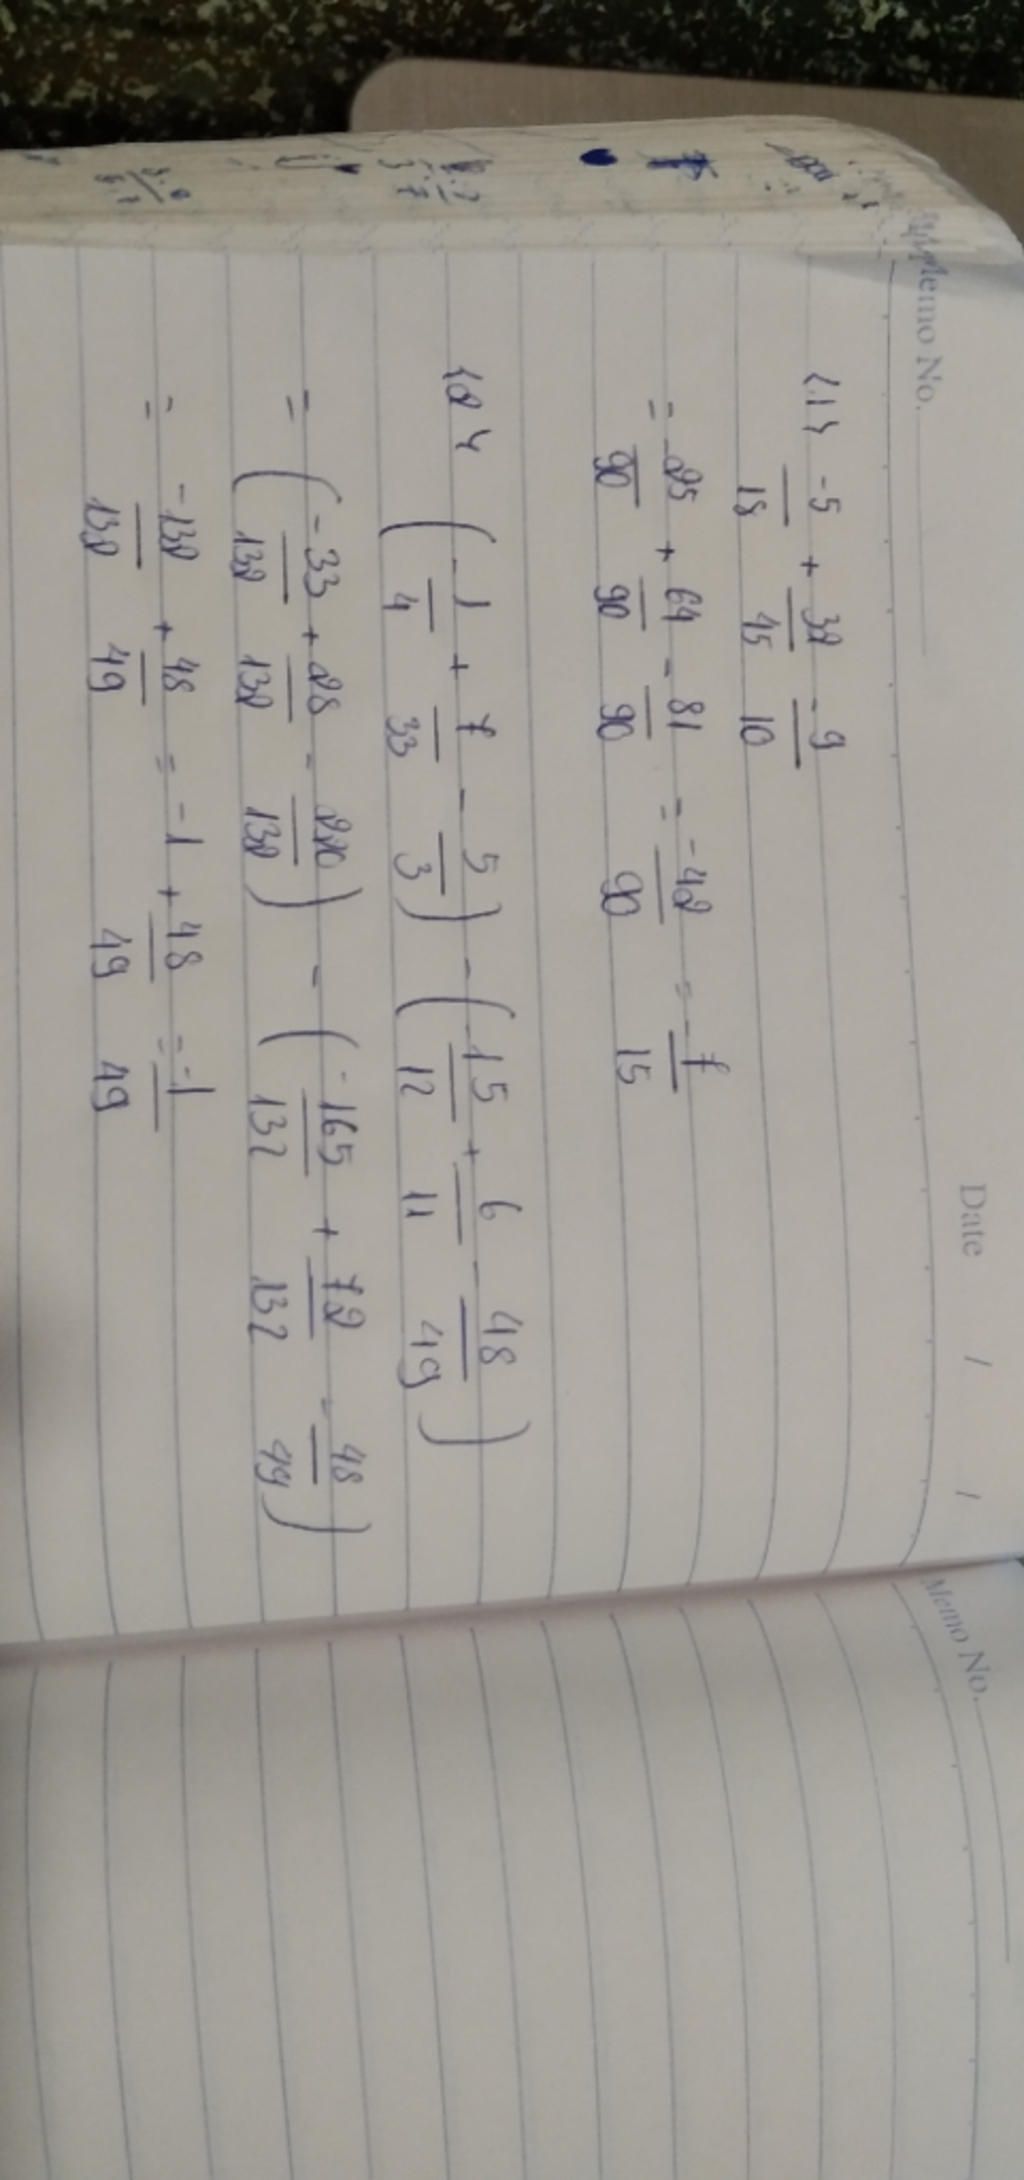 Memo No. Date / /
{1} -5/18 + 32/45 - 9/10
= -25/90 + 64/90 - 81/90 = -42/90 = -7/15
{2} (-1/4 + 7/33 - 5/3) - (-15/12 + 6/11 - 48/49)
= (-33/132 + 28/132 - 220/132) - (-165/132 + 72/132 - 48/49)
= -132/132 + 48/49 = -1 + 48/49 = -1/49
Memo No.